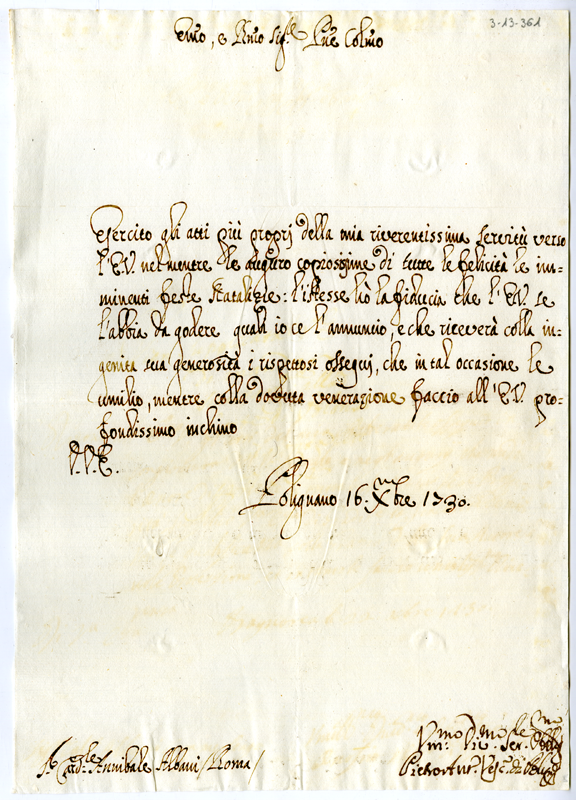 3-13-361
Emo, e Rmo Sig.re Pne Colmo
Esercito gli atti più proprj della mia riverentissima servitù verso
l'E.V. nel mentre le auguro copiosissime di tutte le felicità le im-
minenti feste Natalizie: l'istesse hò la fiducia che l'E.V. se
l'abbia da godere quali io ce l'annuncio, e che riceverà colla in-
genita sua generosità i rispettosi ossequj, che in tal occasione le
umilio, mentre colla dovuta venerazione faccio all'E.V. pro-
fondissimo inchino
V.E.
Polignano 16. Xbre 1730.
Annibale Albani /Roma/
Vmo Dmo Ser.
Pietro Ant. Vesc.